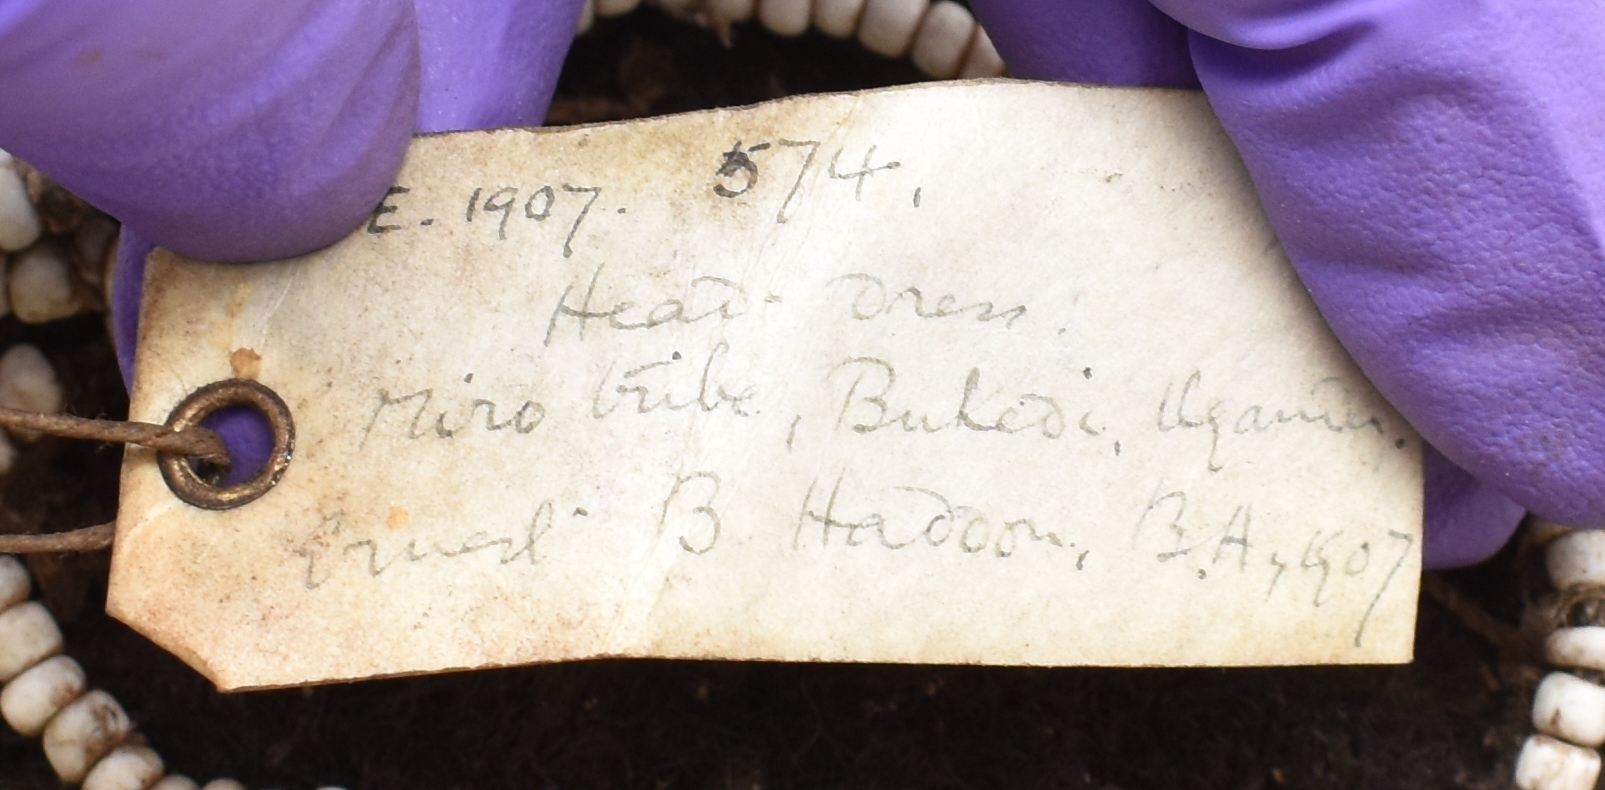 E. 1907. 574.
Head-dress.
Miro tribe, Bukedi, Uganda.
Ernest B Haddon, B.A, 1907